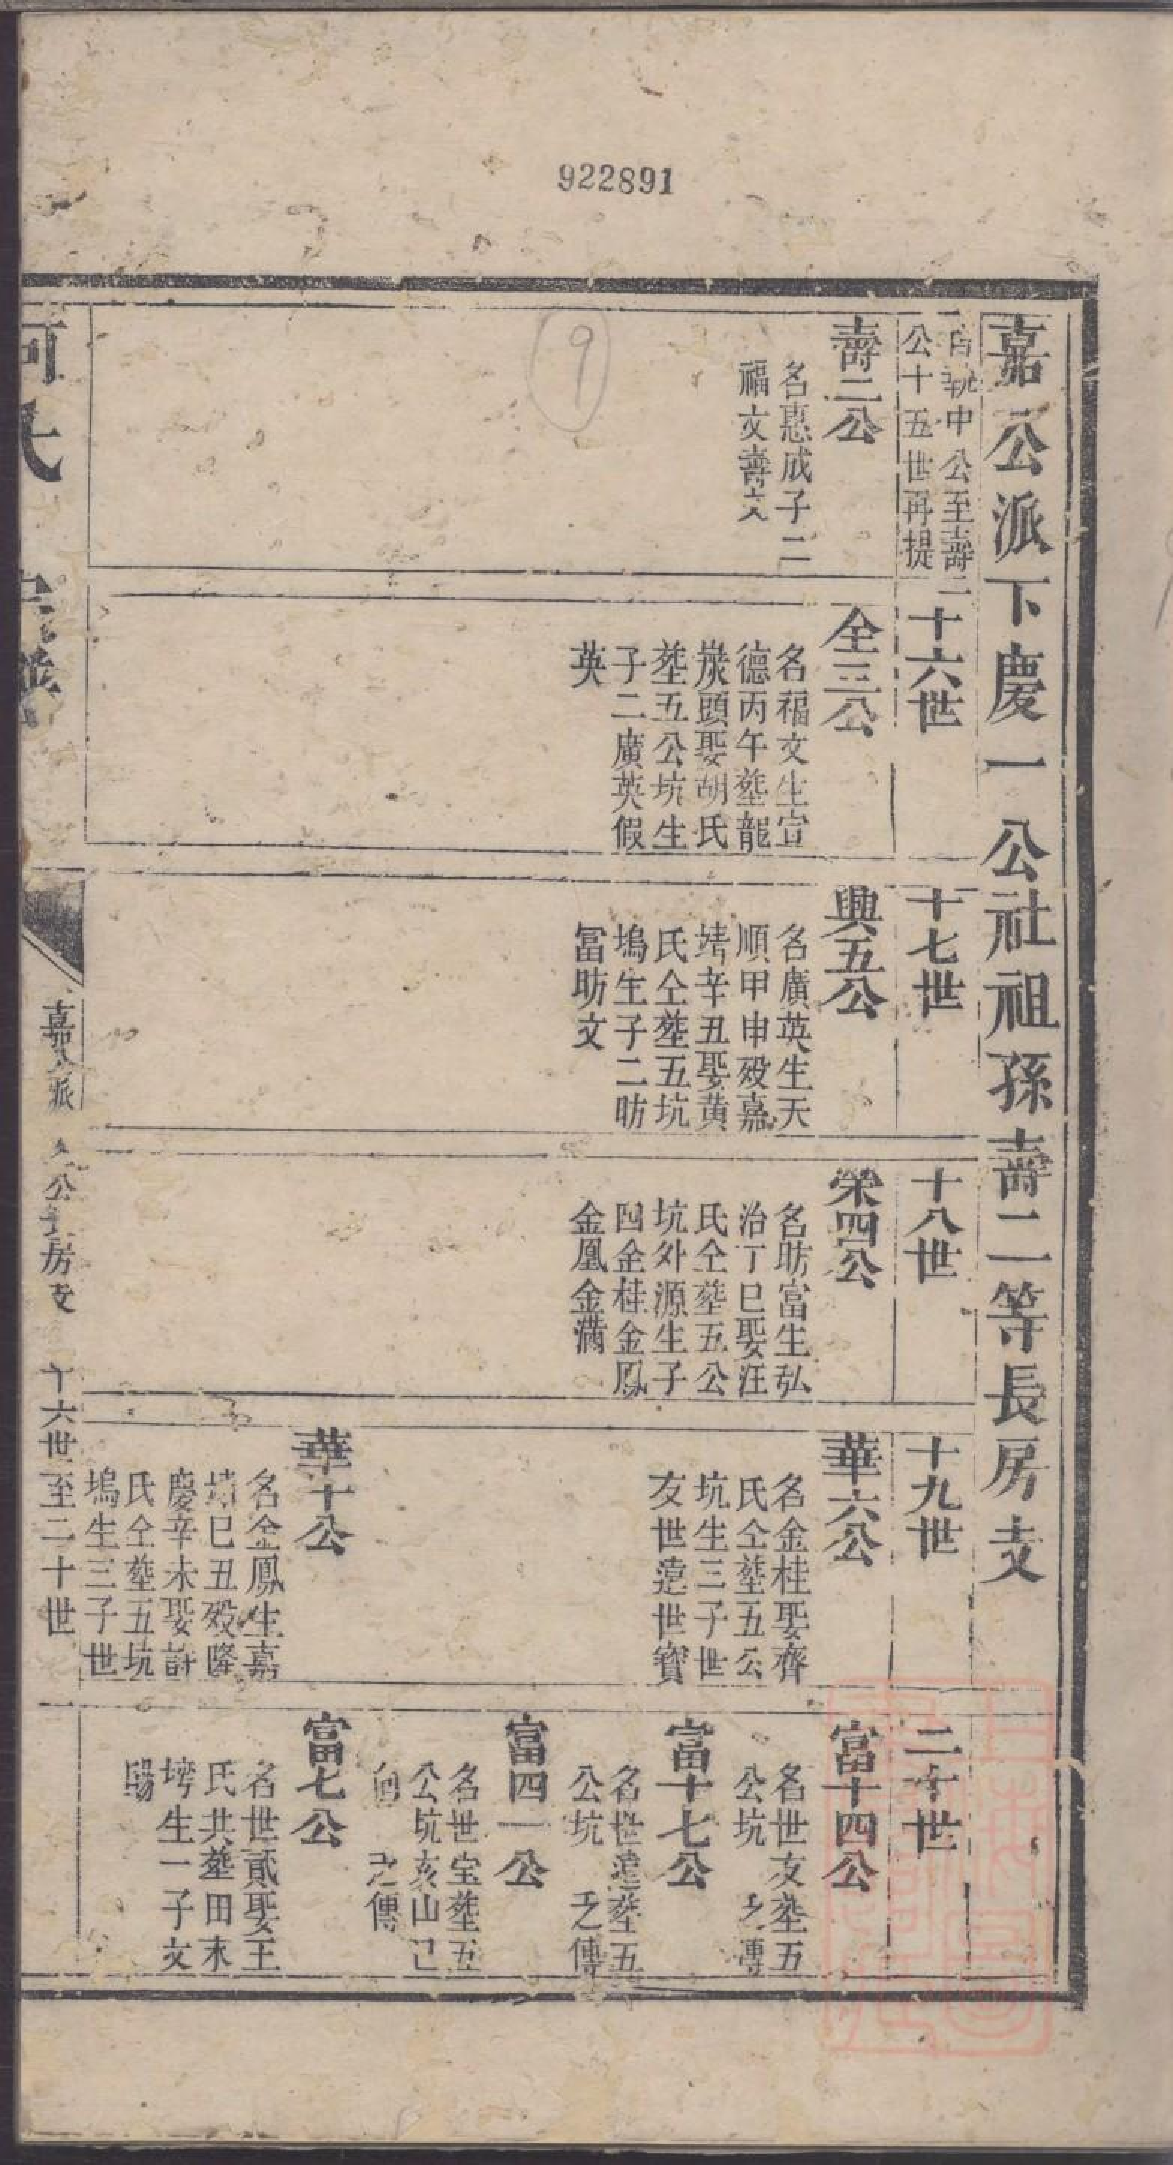 922891
9
嘉公派下慶一公社祖孫壽二等長房支
中公至壽二
公十五世再提
壽二公
名惠成子二
福文壽文
十六世
全三公
名福文生宣
德丙午塟龍
炭頭娶胡氏
塟五公坑生
子二廣英假
英
十七世
興五公
名廣英生天
順甲申歿嘉
靖辛丑娶黄
氏仝塟五坑
塢生子二昉
冨昉文
十八世
荣四公
名昉富生弘
治丁巳娶汪
氏仝塟五公
坑外源生子
四金桂金鳳
金凰金满
十九世
華六公
名金桂娶齊
氏仝塟五公
坑生三子世
友世遠世寳
華十公
名金鳳生嘉
靖己丑歿隆
慶辛未娶計
氏仝塟五坑
塢生三子世
二十世
富十四公
名世友塟五
公坑 之傳
富十七公
名世遠塟五
公坑 之傳
富四一公
名世宝塟五
公坑亥山己
向 之傳
富七公
名世貳娶王
氏共塟田末
塝生一子文
賜
何氏宗譜
嘉公派 公長房支 十六世至二十世